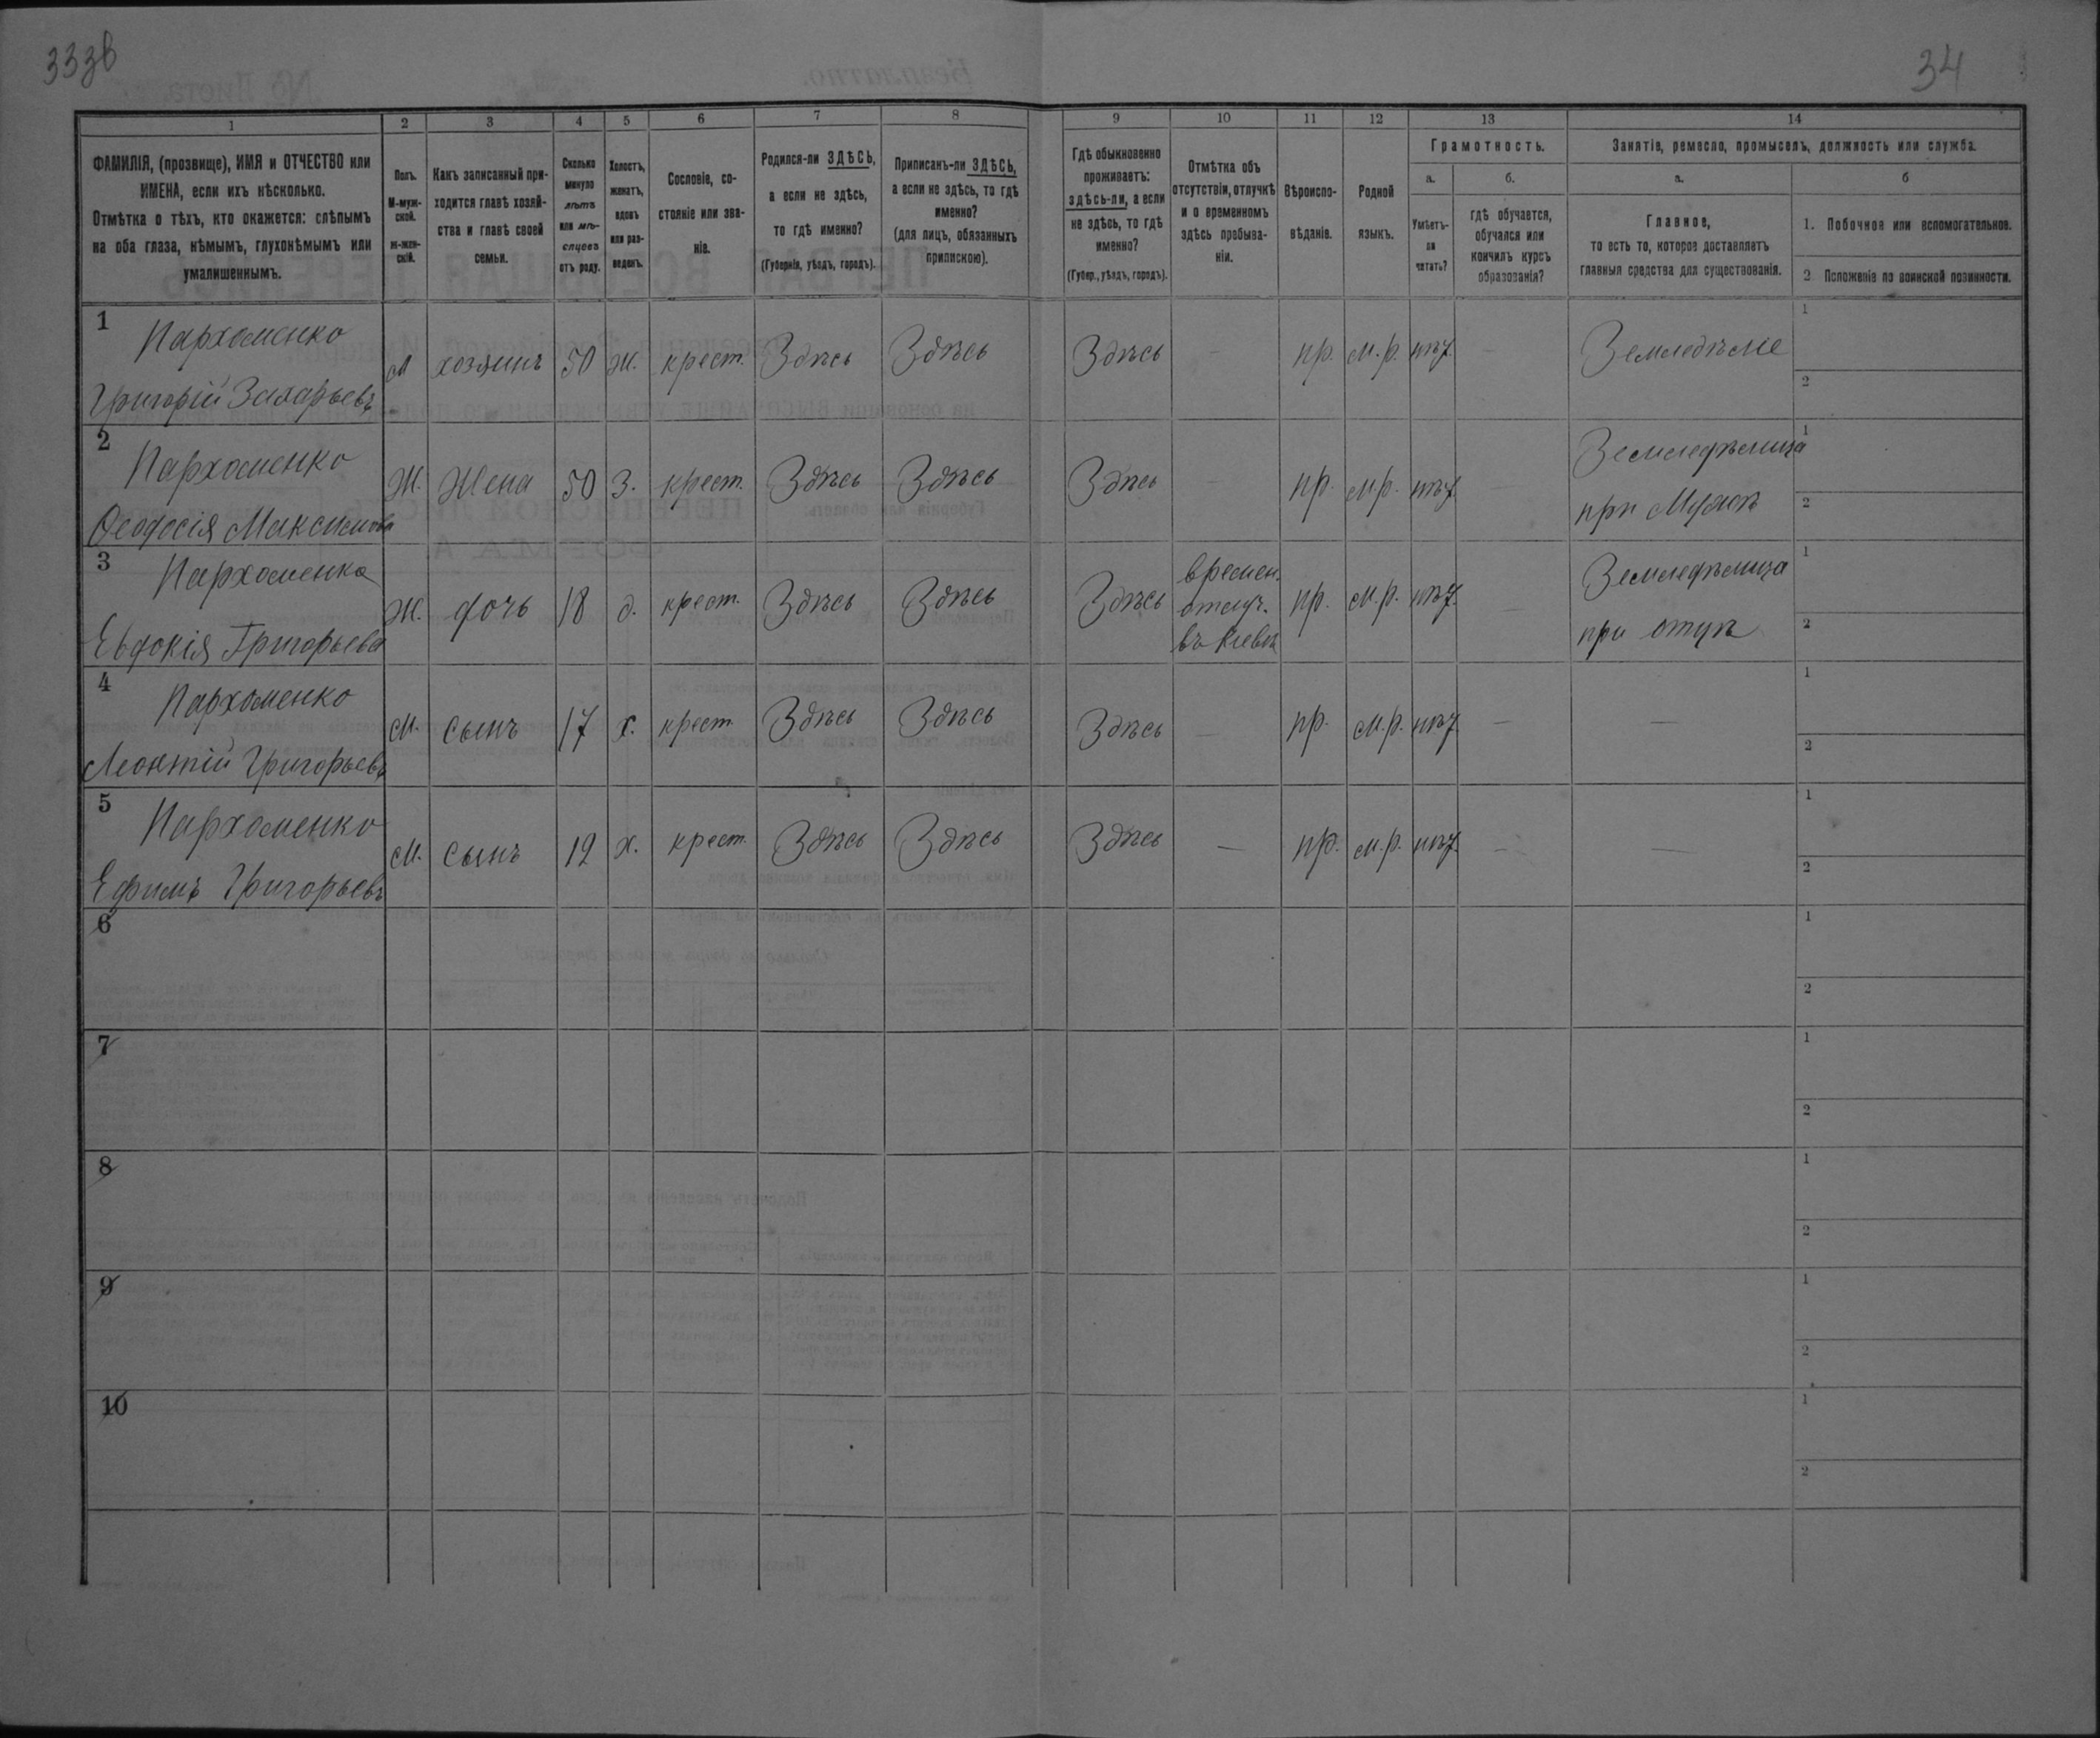 333в
34
1 2 3 4 5 6 7 8 9 10 11 12 13 14
ФАМИЛІЯ, (прозвище), ИМЯ и ОТЧЕСТВО или
ИМЕНА, если ихъ нѣсколько.
Отмѣтка о тѣхъ, кто окажется: слѣпымъ
на оба глаза, нѣмымъ, глухонѣмымъ или
умалишеннымъ.
Полъ.
М-муж-
ской.
ж-жен-
скій.
Какъ записанный при-
ходится главѣ хозяй-
ства и главѣ своей
семьи.
Сколько
минуло
лѣтъ
или мѣ-
сяцевъ
отъ роду.
Холостъ,
женатъ,
вдовъ
или раз-
веденъ.
Сословіе, со-
стояніе или зва-
ніе.
Родился-ли ЗДѢСЬ,
а если не здѣсь,
то гдѣ именно?
(Губернія, уѣздъ, городъ).
Приписанъ-ли ЗДѢСЬ,
а если не здѣсь, то гдѣ
именно?
(для лицъ, обязанныхъ
припискою).
Гдѣ обыкновенно
проживаетъ:
здѣсь-ли, а если
не здѣсь, то гдѣ
именно?
(Губер., уѣздъ, городъ).
Отмѣтка объ
отсутствіи, отлучкѣ
и о временномъ
здѣсь пребыва-
ніи.
Вѣроиспо-
вѣданіе.
Родной
языкъ.
Грамотность.
а.
Умѣетъ-
ли
читать?
б.
гдѣ обучается,
обучался или
кончилъ курсъ
образованія?
Занятіе, ремесло, промыселъ, должность или служба.
а.
Главное,
то есть то, которое доставляетъ
главныя средства для существованія.
б
1. Побочное или вспомогательное.
2 Положеніе по воинской повинности.
1 Пархоменко
Григорій Захарьевъ
М хозяинъ 50 Ж. крест. Здѣсь Здѣсь Здѣсь — пр. м.р. нѣт. — Земледѣліе
1
2
2 Пархоменко
Ѳеодосія Максимова
Ж. Жена 50 З. крест. Здѣсь Здѣсь Здѣсь — пр. м.р. нѣт. — Земледѣлица
при Мужѣ
1
2
3 Пархоменко
Евдокія Григорьева
Ж. дочь 18 д. крест. Здѣсь Здѣсь Здѣсь
времен.
отлуч.
въ Кіевѣ
пр. м.р. нѣт. — Земледѣлица
при отцѣ
1
2
4 Пархоменко
Леонтій Григорьевъ
М. сынъ 17 х. крест. Здѣсь Здѣсь Здѣсь — пр. м.р. нѣт. — —
1
2
5 Пархоменко
Ефимъ Григорьевъ
М. сынъ 12 х. крест. Здѣсь Здѣсь Здѣсь — пр. м.р. нѣт. — —
1
2
6
1
2
7
1
2
8
1
2
9
1
2
10
1
2